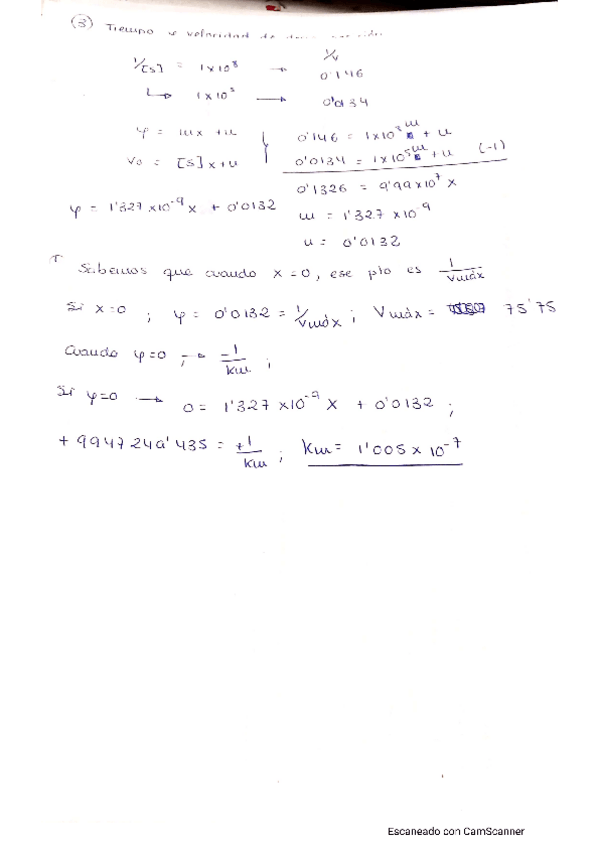 (3) Tiempo y velocidad de
1/[S] = 1x10⁸ → 1/v 0'146
↳ 1x10⁵ → 0'0134
y = mx + n } 0'146 = 1x10⁸ m + n
v₀ = [S]x+n 0'0134 = 1x10⁵ m + n (-1)
0'1326 = 9'99x10⁷ x
y = 1'327x10⁻⁹x + 0'0132 m = 1'327x10⁻⁹
n = 0'0132
Sabemos que cuando x=0, ese pto es 1/Vmáx
Si x=0 ; y = 0'0132 = 1/Vmáx ; Vmáx = 75'75
Cuando y=0 ; → -1/Km ;
Si y=0 → 0 = 1'327x10⁻⁹ x + 0'0132 ;
+ 9947240'435 = +1/Km ; Km = 1'005 x 10⁻⁷
Escaneado con CamScanner